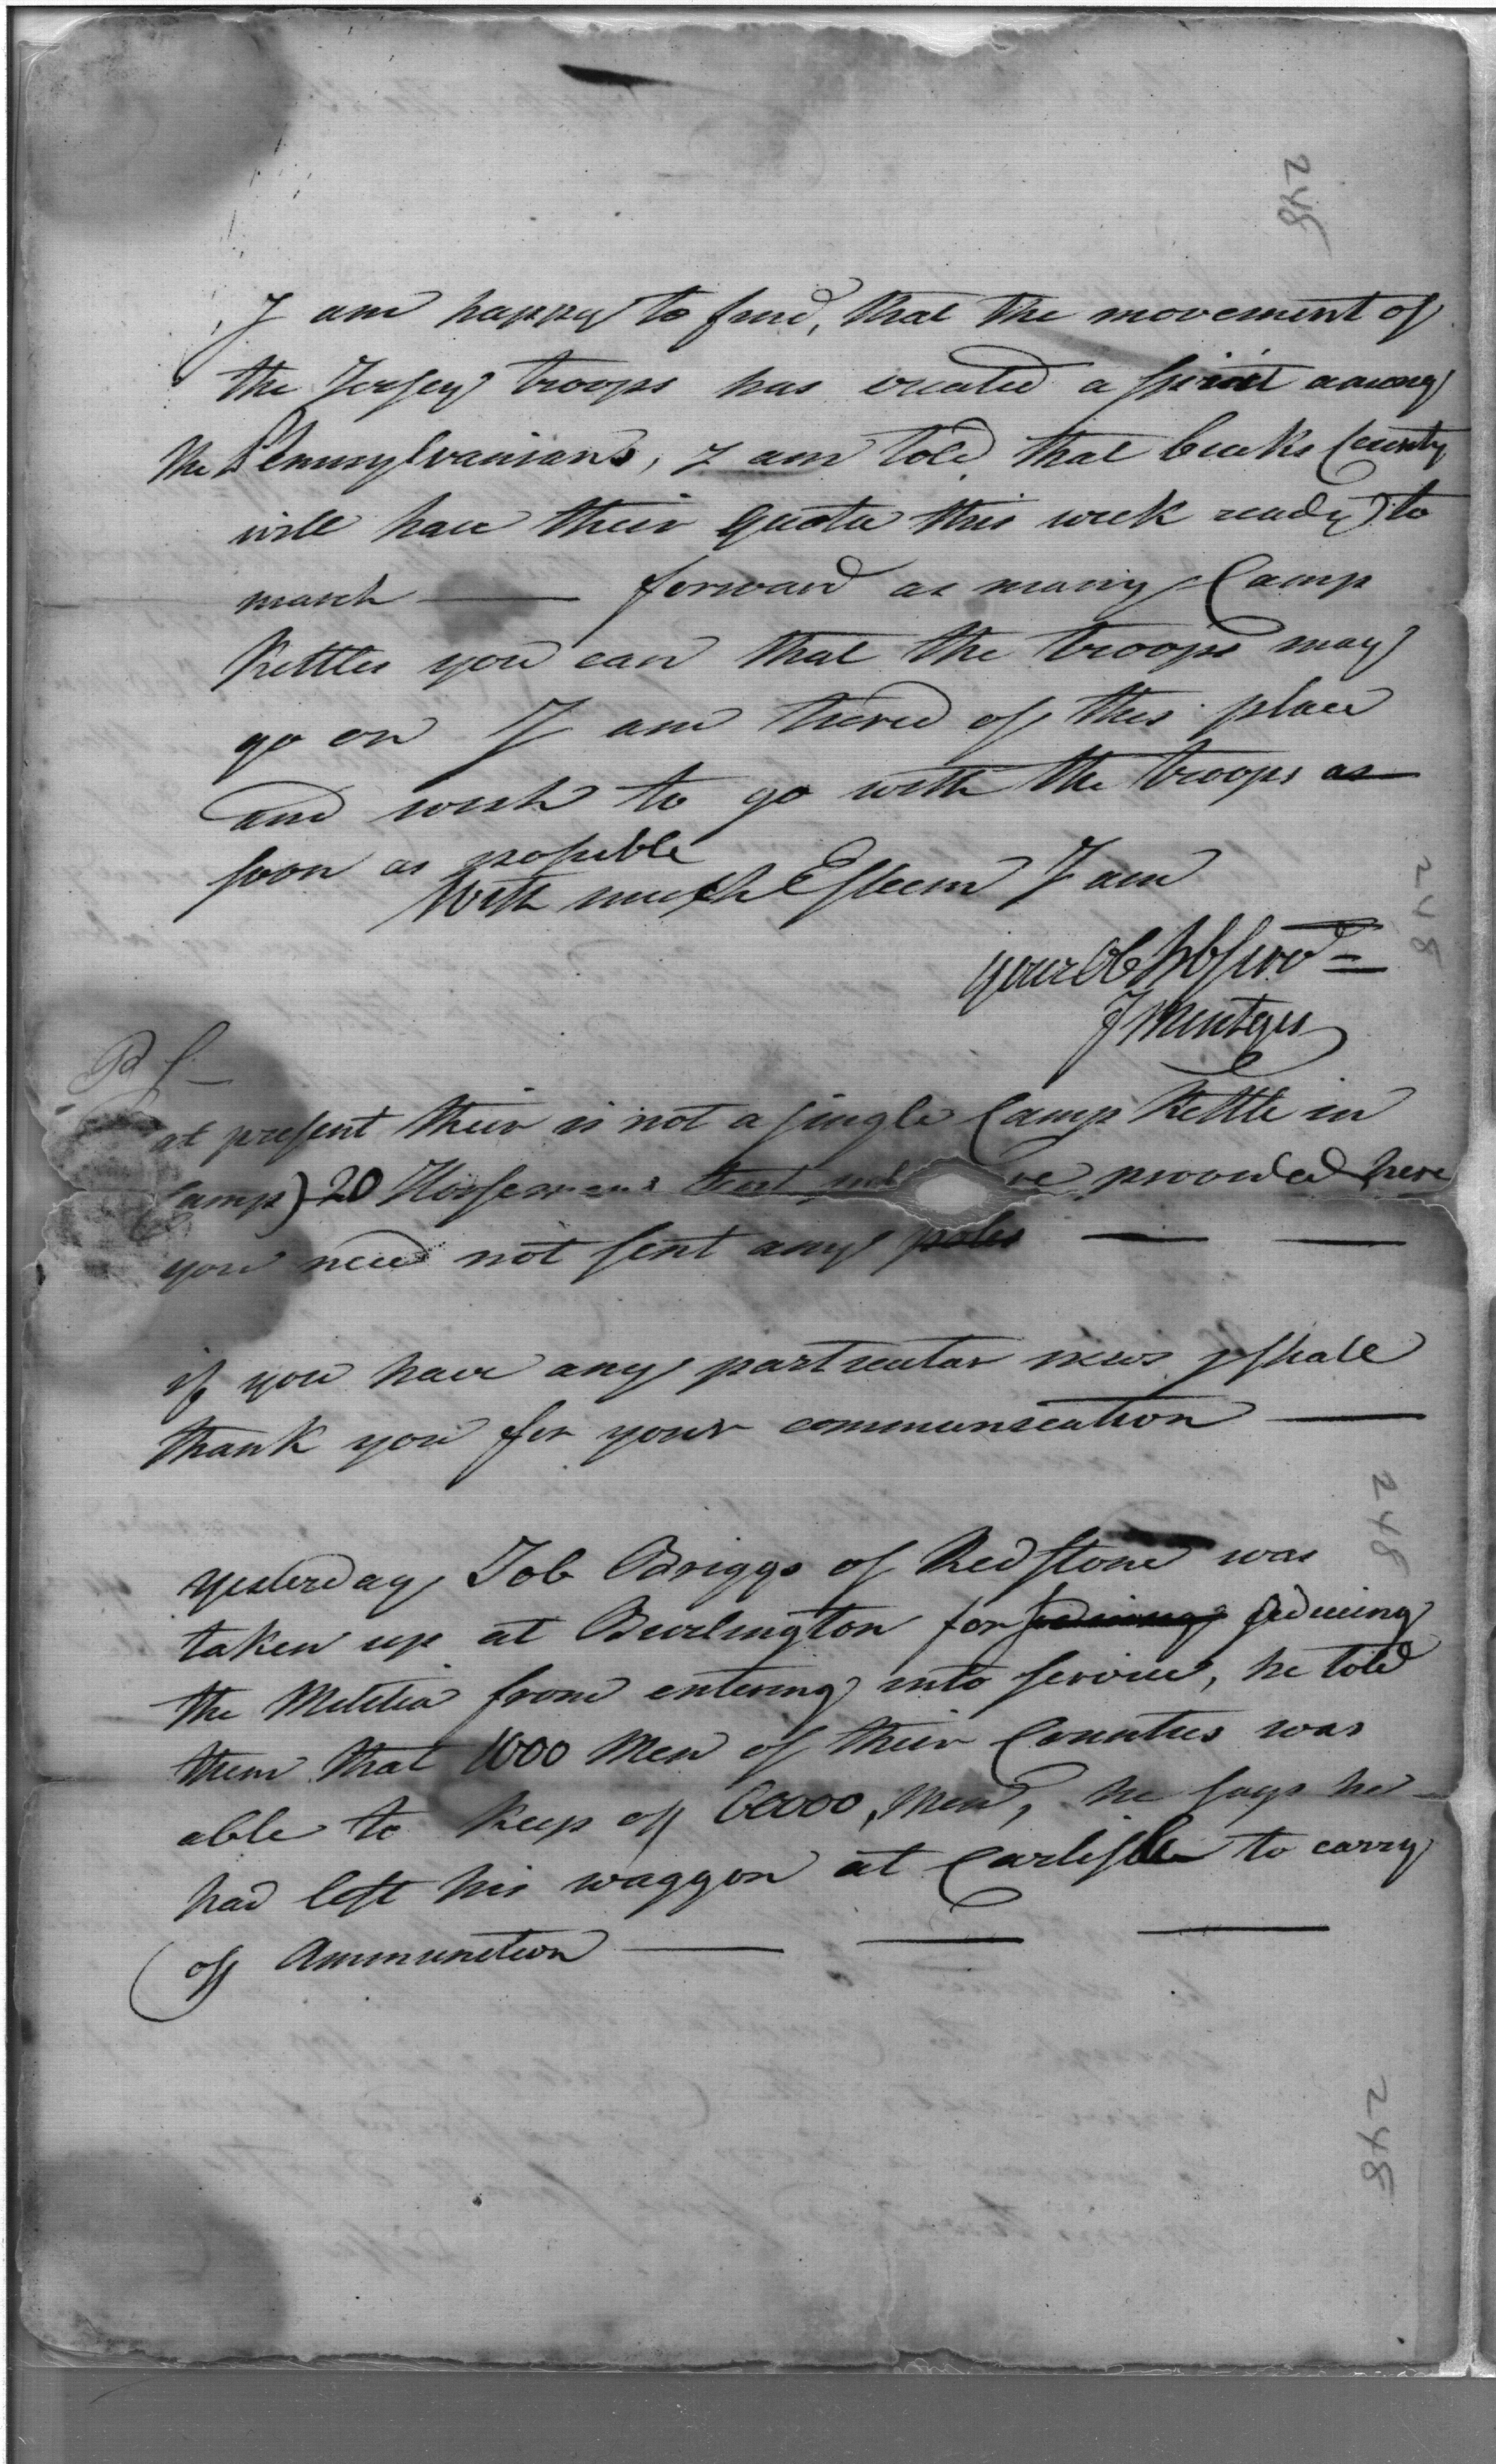 248
I am happy to find, that the movement of
the Jersey troops has created a spirit among
the Pennsylvanians, I am told that bucks County
will have their quota this week ready to
march — forward as many Camp
Kettles you can that the troops may
go on I am tiered of this place
and wish to go with the troops as
soon as possible
With much Esteem I am
your Ob
F Mentges
PS —
at present their is not a single Camp Kettle in
Camp) 20 Horsemens provided here
you need not sent any poles — —
if you have any particular news I shall
thank you for your communication —
yesterday Job Briggs of Redstone was
taken up at Burlington for seducing
the Militia from entering into service, he told
them that 1000 Men of their Counties was
able to keep off 6000 Men, he says he
had left his waggon at Carlisle to carry
off Ammunition — — —
248
248
248